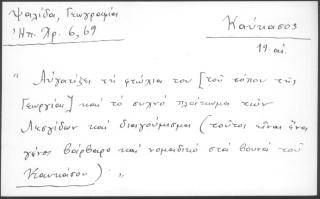 Ψαλίδα, Γεωγραφία
Ἠπ. Χρ. 6, 69
Καύκασος
19. αἰ.
"Αὐγατίζει τὴ φτώχια του [τοῦ τόπου τῆς
Γεωργίας] καὶ τὸ συχνὸ πλάκωμα τῶν
Λεσγίδων καὶ διαγούμισμα (τοῦτοι εἶναι ἕνα
γένος βάρβαρο καὶ νομαδικὸ στὰ βουνὰ τοῦ
Καυκάσου)"